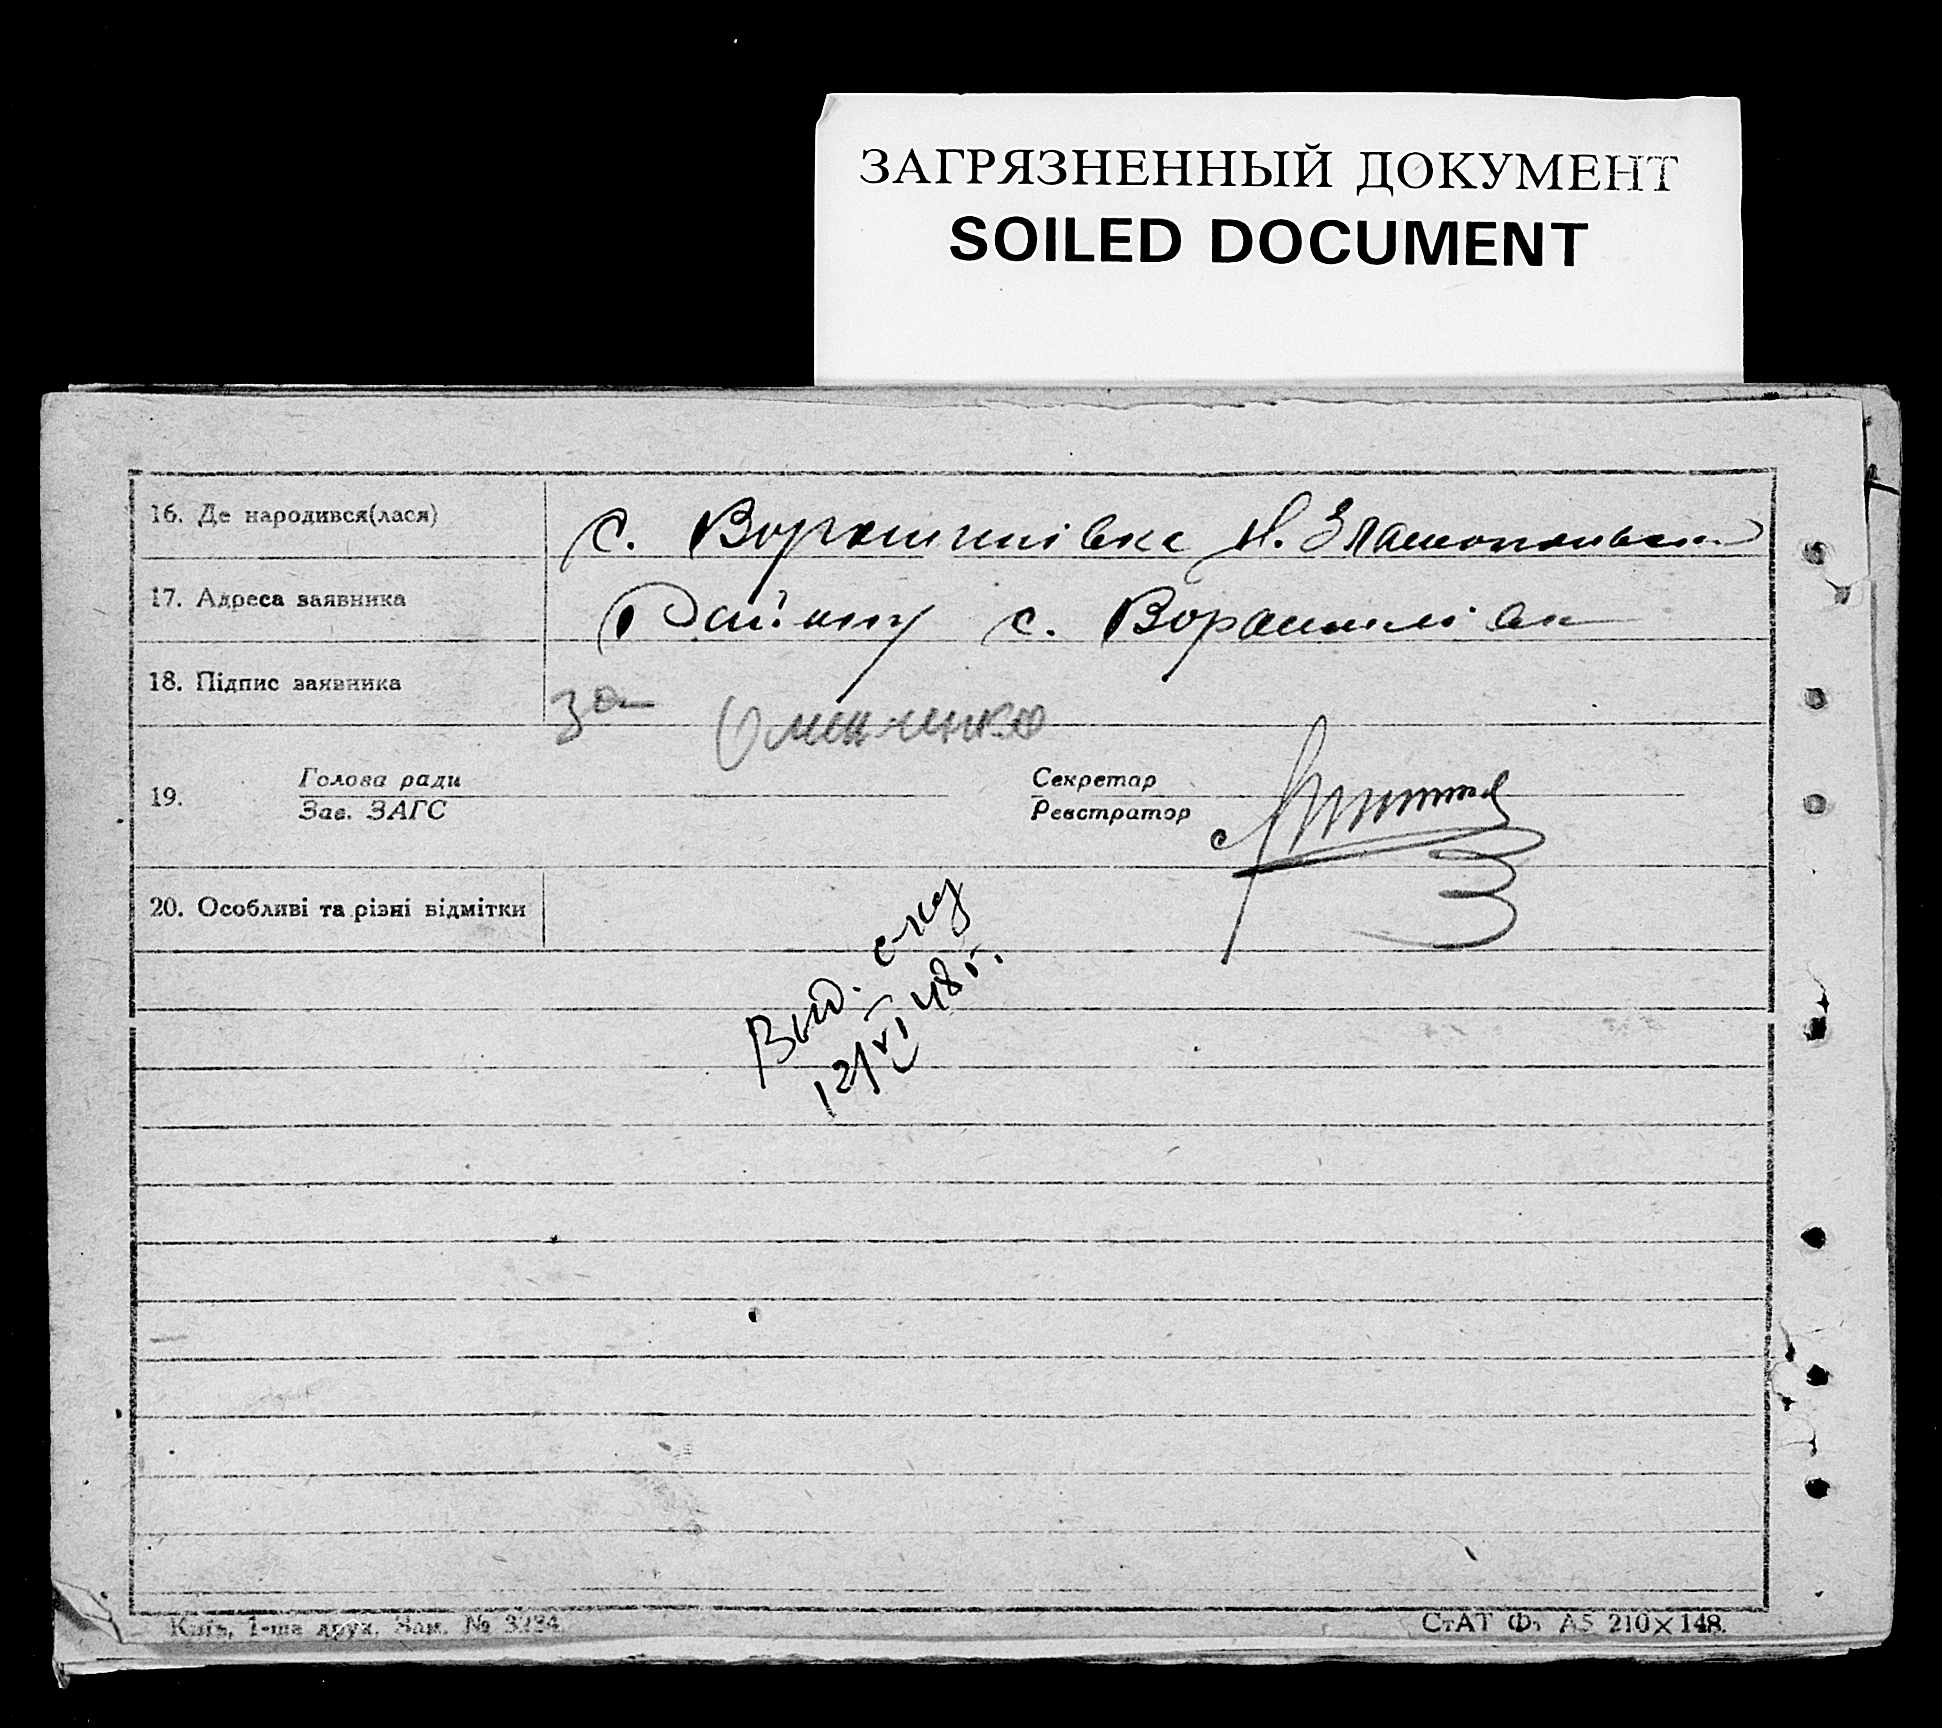 ЗАГРЯЗНЕННЫЙ ДОКУМЕНТ
SOILED DOCUMENT
16. Де народився(лася) с. Ворошилівка Н. Златопільськ
17. Адреса заявника Району с. Ворошилівк
18. Підпис заявника за
19. Голова ради Секретар
Зав. ЗАГС Реєстратор
20. Особливі та різні відмітки
Выд. с-ку
12/VI 48 г.
Київ, 1-ша друк. Зам. № 3234
СтАТ Ф. А5 210×148.